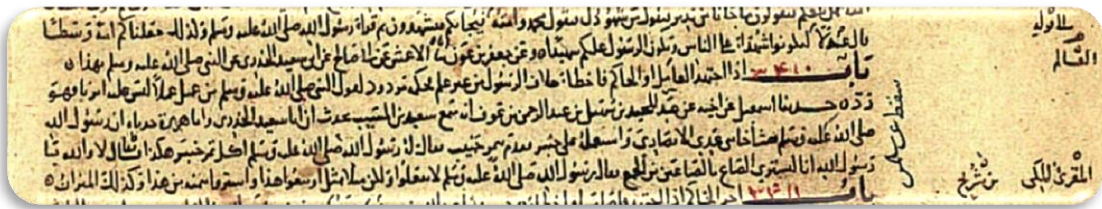 فيقولون ما جاءنا من نذير فيقول من شهودك فيقول محمد وأمته فيجاء بكم فتشهدون ثم قرأ رسول الله صلى الله عليه وسلم وكذلك جعلناكم أمة وسطا
قال عدلا لتكونوا شهداء على الناس ويكون الرسول عليكم شهيدا وعن جعفر بن عون نا الاعمش عن ابي صالح عن ابي سعيد الخدري عن النبي صلى الله عليه وسلم بهذا
باب ٣٤١٠ اذا اجتهد العامل او الحاكم فاخطا خلاف الرسول من غير علم فحكمه مردود لقول النبي صلى الله عليه وسلم من عمل عملا ليس عليه امرنا فهو
رد حدثنا اسمعيل عن اخيه عن عبد المجيد بن سهيل بن عبد الرحمن بن عوف انه سمع سعيد بن المسيب يحدث ان ابا سعيد الخدري وابا هريرة حدثاه ان رسول الله
صلى الله عليه وسلم بعث اخا بني عدي الانصاري واستعمله على خيبر فقدم بتمر جنيب فقال له رسول الله صلى الله عليه وسلم اكل تمر خيبر هكذا قال لا والله يا
رسول الله انا لنشتري الصاع بالصاعين من الجمع فقال رسول الله صلى الله عليه وسلم لا تفعلوا ولكن مثلا بمثل او بيعوا هذا واشتروا بثمنه من هذا وكذلك الميزان
باب ٣٤١١ اجر الحاكم اذا اجتهد فاصاب او اخطا
سقط